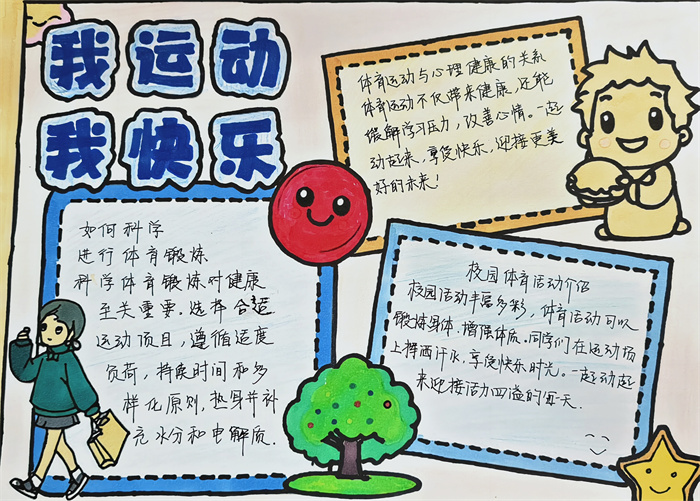 我运动
我快乐
体育运动与心理健康的关系
体育运动不仅带来健康,还能
缓解学习压力,改善心情。一起
动起来,享受快乐,迎接更美
好的未来!
如何科学
进行体育锻炼
科学体育锻炼对健康
至关重要.选择合适
运动项目,遵循适度
负荷,持度时间和多
样化原则,热身并补
充水分和电解质.
校园体育活动介绍
校园活动丰富多彩,体育活动可以
锻炼身体.增强体质.同学们在运动场
上挥洒汗水,享受快乐时光。一起动起
来迎接活力四溢的每天.